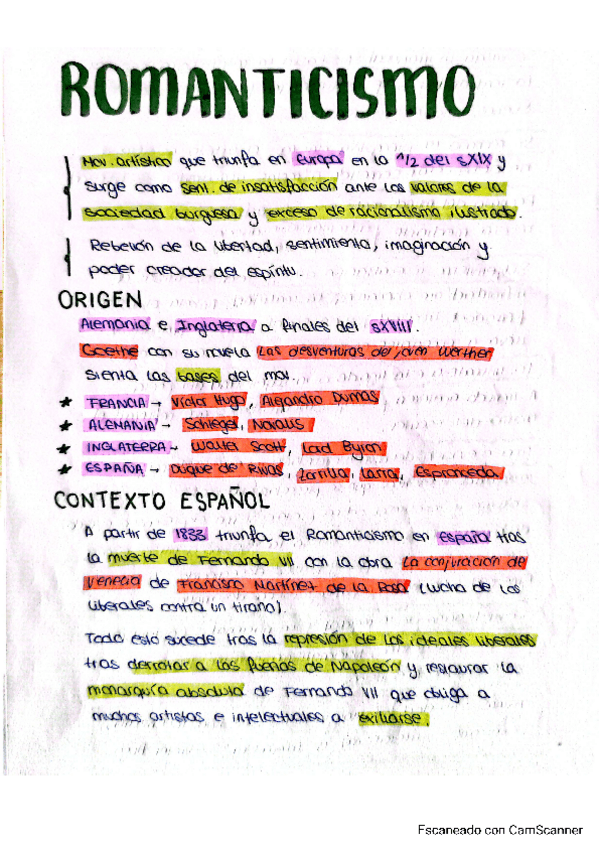 ROMANTICISMO
Mov. artístico que triunfa en Europa en la 1/2 del sXIX y
surge como sent. de insatisfacción ante los valores de la
sociedad burguesa y exceso de racionalismo ilustrado.
Rebelión de la libertad, sentimiento, imaginación y
poder creador del espíritu.
ORIGEN
Alemania e Inglaterra a finales del sXVIII.
Goethe con su novela Las desventuras del joven Werther
sienta las bases del mov.
★ FRANCIA → Victor Hugo, Alejandro Dumas
★ ALEMANIA → Schlegel, Novalis
★ INGLATERRA → Walter Scott, Lord Byron
★ ESPAÑA → Duque de Rivas, Zorrilla, Larra, Espronceda.
CONTEXTO ESPAÑOL
A partir de 1833 triunfa el Romanticismo en España tras
la muerte de Fernando VII con la obra La conjuración de
Venecia de Francisco Martínez de la Rosa (lucha de los
liberales contra un tirano).
Todo esto sucede tras la represión de los ideales liberales
tras derrotar a las fuerzas de Napoleón y restaurar la
monarquía absoluta de Fernando VII que obliga a
muchos artistas e intelectuales a exiliarse.
Escaneado con CamScanner